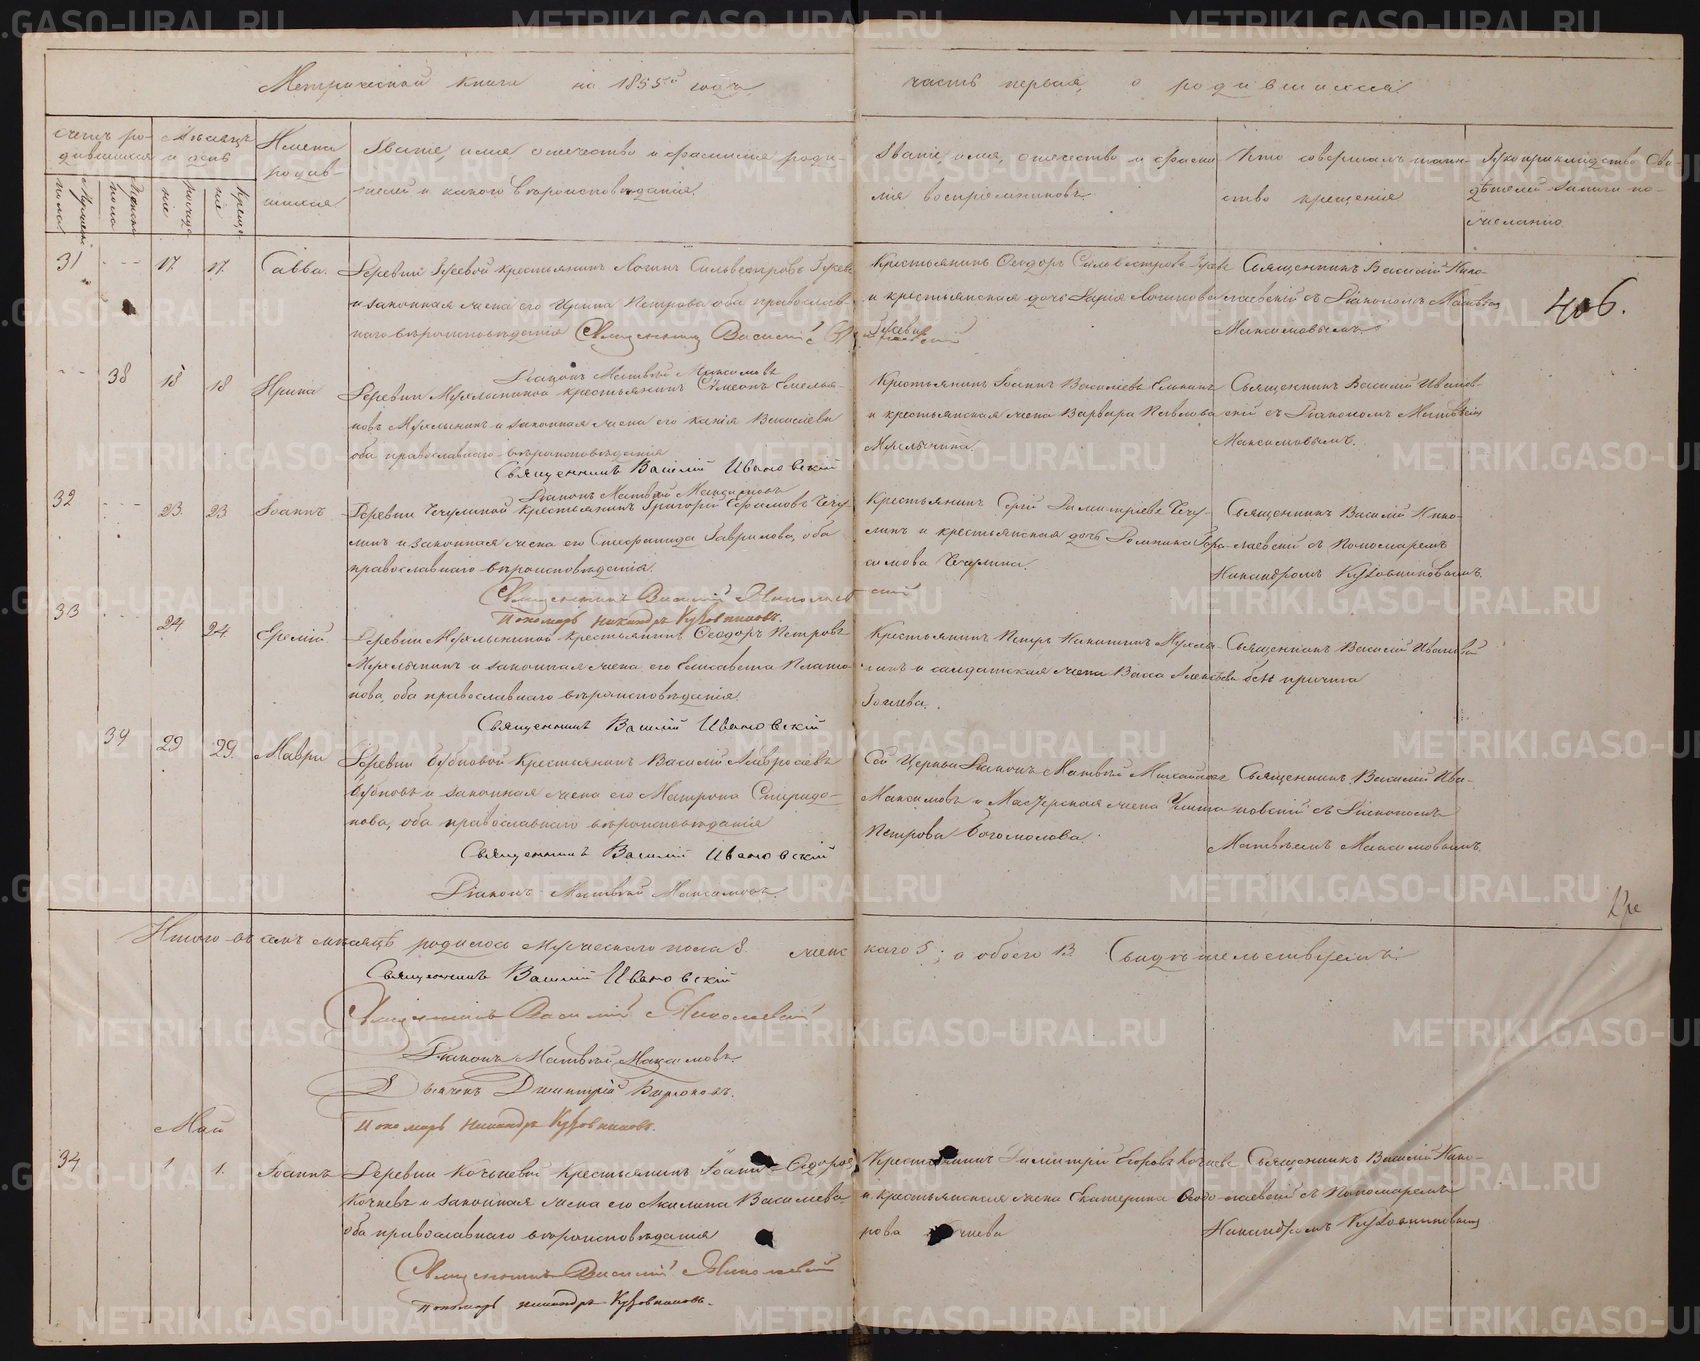 Метрической книги на 1855й годъ часть первая, о родившихся
Счетъ ро-
дившихся
Мужеска
пола
Женска
пола
Мѣсяцъ
и день
рожде
нія
креще
нія
Имена
родив-
шихся
Званіе, имя, отечество и фамилія роди-
телей и какого вѣроисповѣданія
Званіе, имя, отечество и фами
лія воспріемниковъ
Кто совершалъ таин-
ство крещенія
Рукоприкладство сви-
дѣтелей записи по
желанію
406.
31 17 17. Савва.
Деревни крестьянинъ Логинъ Сильвестровъ
и законная жена его Ирина Петрова оба православ-
наго вѣроисповѣданія Священникъ Василій
Діаконъ Матвѣй Максимовъ
Крестьянинъ Ѳеодоръ Сильвестровъ
и крестьянская дочь Дарія Логинова
Священникъ Василій Нико-
лаевскій съ Діакономъ Матвѣем
Максимовымъ
38 18 18 Ирина
Деревни Мурлыкиной крестьянинъ Симеонъ Емелья-
новъ Мурлыкинъ и законная жена его Васильева
оба православнаго вѣроисповѣданія
Священникъ Василій Ивановскій
Діаконъ Матвѣй Максимовъ
Крестьянинъ Іоаннъ Васильевъ
и крестьянская жена Варвара Павлова
Священникъ Василій Иванов-
скій съ Діакономъ Матвѣем
Максимовымъ.
32 23 23 Іоаннъ
Деревни Чечулиной крестьянинъ Григорій Ефимовъ Чечу-
линъ и законная жена его Стефанида Гаврилова, оба
православнаго вѣроисповѣданія.
Священникъ Василій Николаевскій
Пономарь Никандръ Кузовниковъ.
Крестьянинъ Сергій Димитріевъ Чечу-
линъ и крестьянская дочь
Чечулина.
Священникъ Василій Нико-
лаевскій съ Пономаремъ
Никандромъ Кузовниковымъ.
33 24 24 Еремій
Деревни Мурлыкиной крестьянинъ Ѳеодоръ Петровъ
Мурлыкинъ и законная жена его Елисавета Плато-
нова, оба православнаго вѣроисповѣданія
Священникъ Василій Ивановскій
Крестьянинъ Петръ Никитинъ Мурлы-
кинъ и салдатская жена Васса
Священникъ Василій Иванов
безъ причта
39 29 29. Мавра
Деревни Бубновой Крестьянинъ Василій Амвросіевъ
Бубновъ и законная жена его Матрона Спиридо-
нова, оба православнаго вѣроисповѣданія
Священникъ Василій Ивановскій
Діаконъ Матвѣй Максимовъ.
Сей Церкви Діаконъ Матвѣй
Максимовъ и Мастерская жена
Петрова Богомолова.
Священникъ Василій Ива-
новскій съ Діакономъ
Матвѣемъ Максимовымъ.
Итого въ семъ мѣсяцѣ родилось мужескаго пола 8. женс каго 5; а обоего 13. Свидѣтельствуемъ:
Священникъ Василій Ивановскій
Священникъ Василій Николаевскій
Діаконъ Матвѣй Максимовъ.
Дьячекъ Димитрій
Пономарь Никандръ Кузовниковъ.
Май
34 1. 1. Іоаннъ
Деревни Кочневой крестьянинъ Іоаннъ Сидоров
Кочневъ и законная жена его Акилина Васильева
оба православнаго вѣроисповѣданія
Священникъ Василій Николаевскій
Пономарь Никандръ Кузовниковъ.
Крестьянинъ Димитрій Егоровъ Кочневъ
и крестьянская жена Екатерина Ѳеодо-
рова Кочнева
Священникъ Василій Нико-
лаевскій съ Пономаремъ
Никандромъ Кузовниковым
METRIKI.GASO-URAL.RU